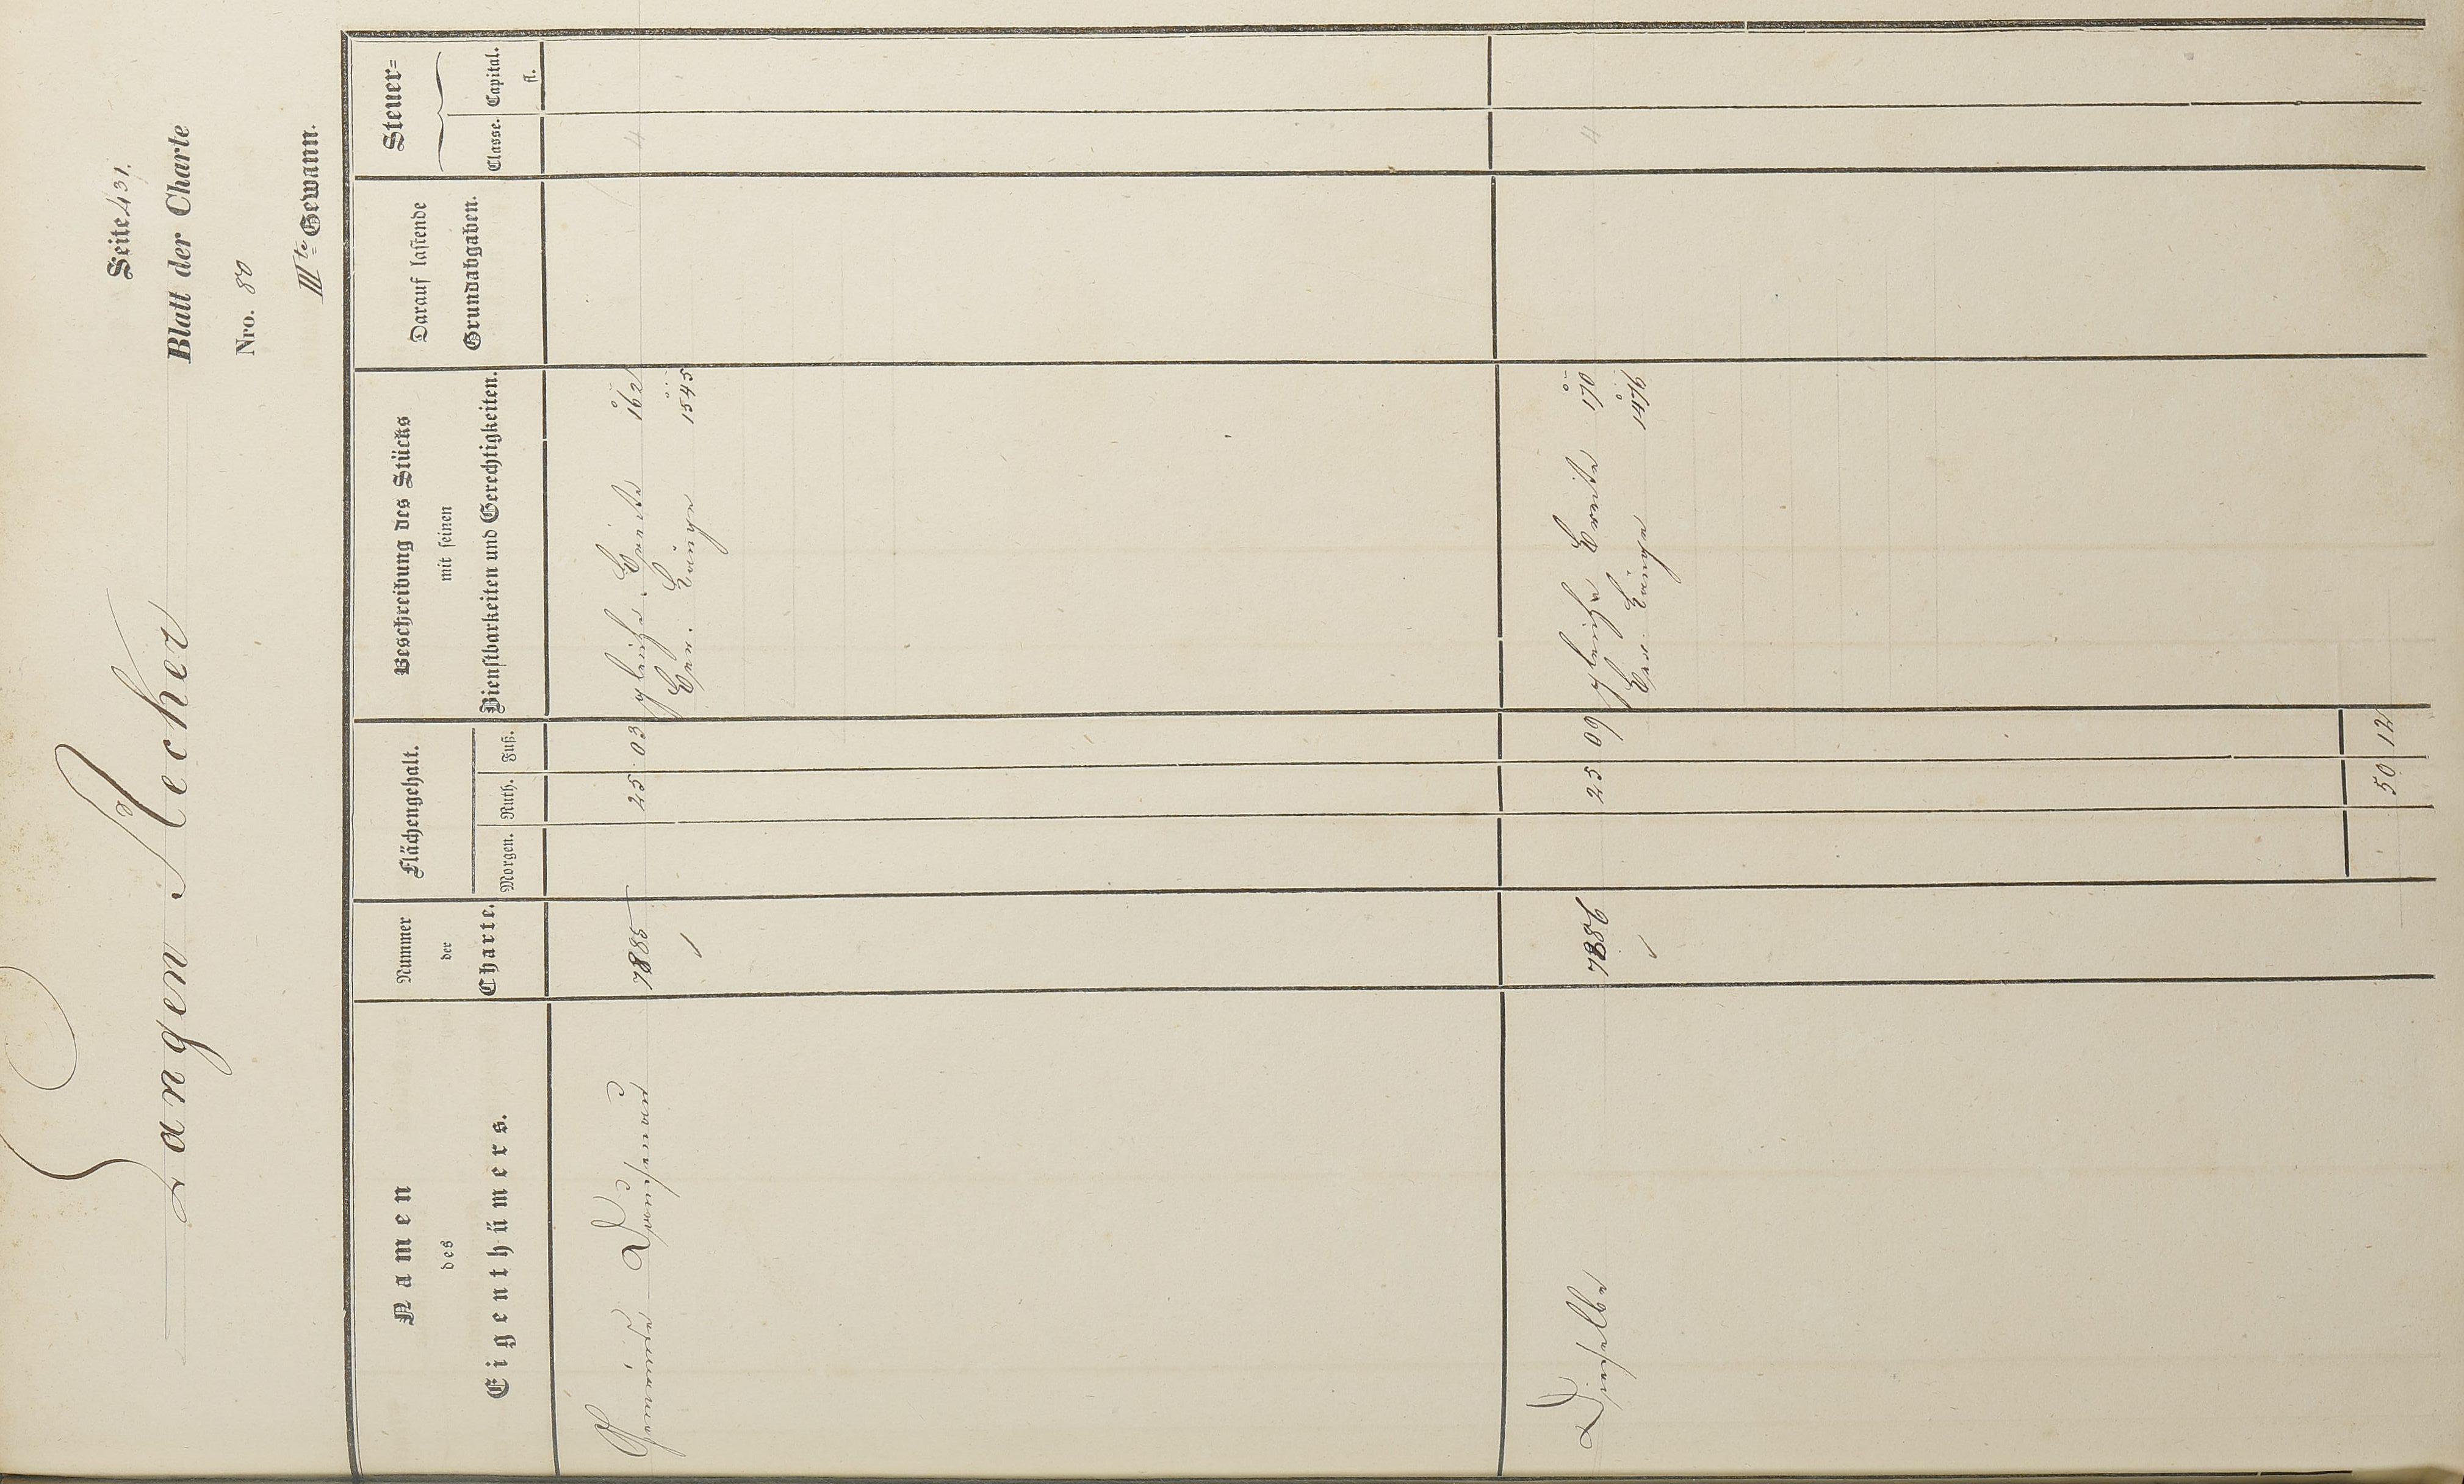 Seite 431.
Langen Aecker
Blatt der Charte
Nro. 80
IIIte Gewann.
Namen
des
Eigenthümers.
Nummer
der
Charte.
Flächengehalt.
Morgen. Ruth. Fuß.
Beschreibung des Stücks
mit seinen
Dienstbarkeiten und Gerechtigkeiten.
Darauf lastende
Grundabgaben.
Steuer=
Classe. Capital.
fl.
Gemeinde 7885 25 03 gleiche Breite 162 4
Ber. Länge 1545
Dieselbe 7886 25 09 gleiche Breite 170 4
Ber. Länge 1476
50 12